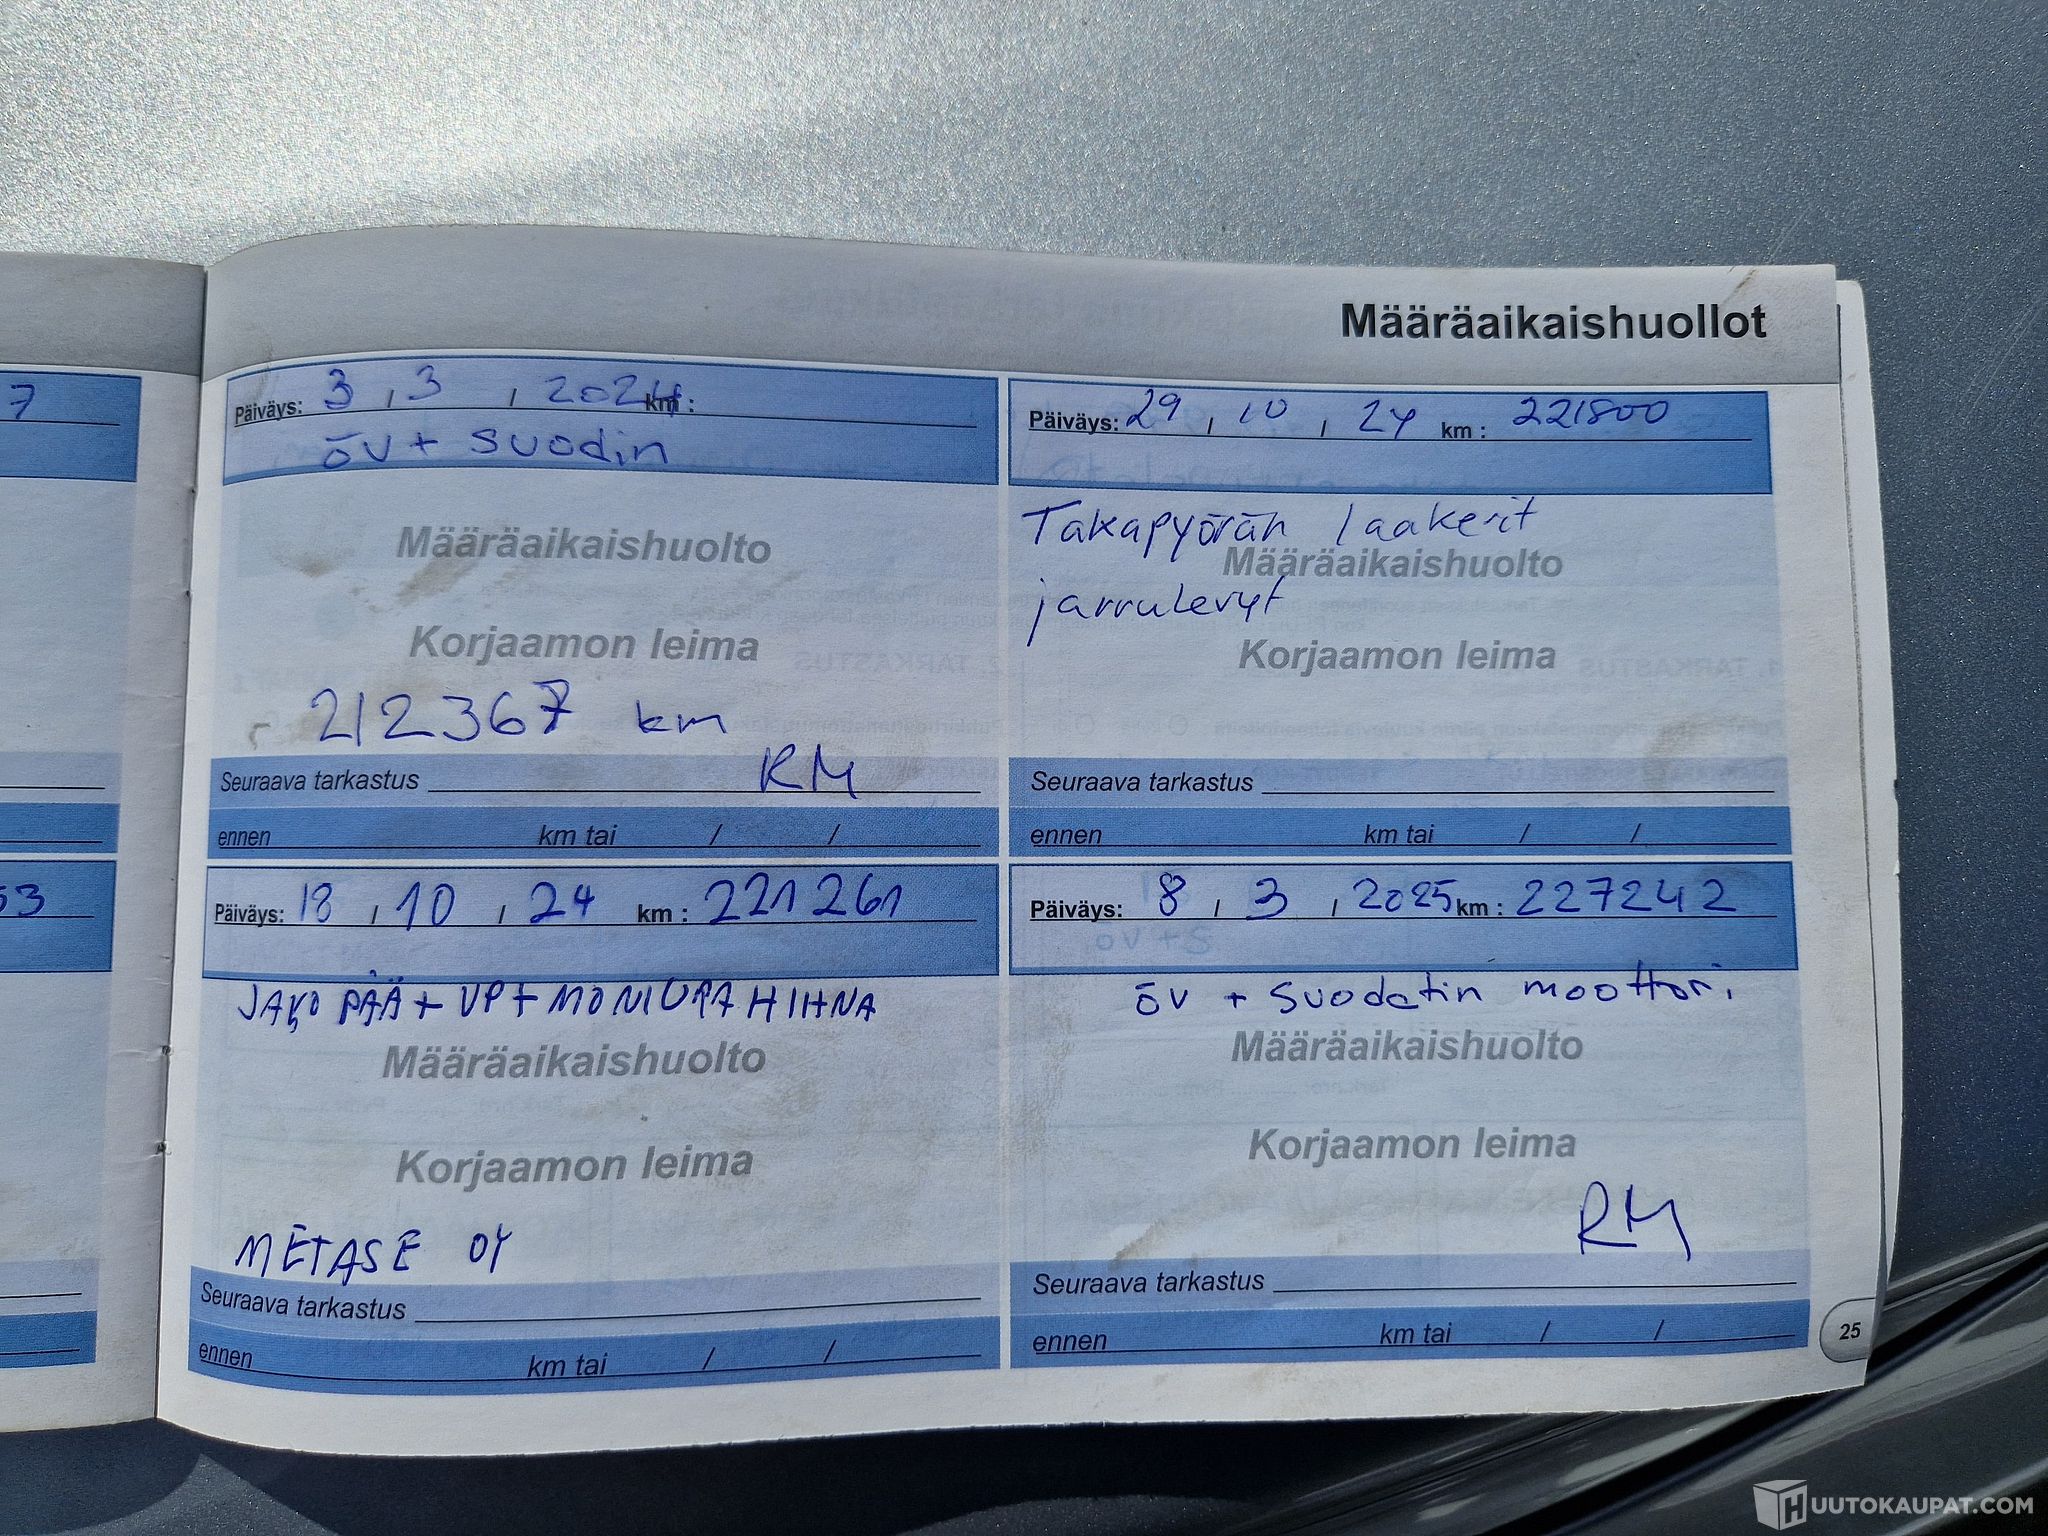 Määräaikaishuollot
7
53
Päiväys: 3 , 3 , 2024 km :
öv + suodin
Määräaikaishuolto
Korjaamon leima
212367 km
RM
Seuraava tarkastus
ennen km tai / /
Päiväys: 29 , 10 , 24 km : 221800
Takapyörän laakerit
Määräaikaishuolto
jarrulevyt
Korjaamon leima
Seuraava tarkastus
ennen km tai / /
Päiväys: 18 , 10 , 24 km : 221 261
JAKO PÄÄ + VP + MONIURA HIHNA
Määräaikaishuolto
Korjaamon leima
METASE OY
Seuraava tarkastus
ennen km tai / /
Päiväys: 8 , 3 , 2025 km : 227242
öv + suodatin moottori
Määräaikaishuolto
Korjaamon leima
RM
Seuraava tarkastus
ennen km tai / /
25
HUUTOKAUPAT.COM